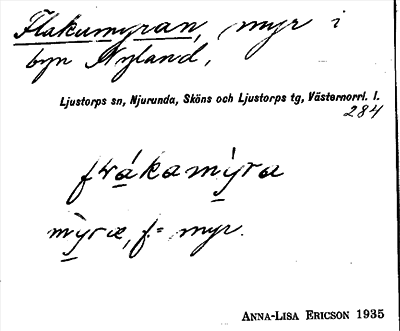 Flakamyran, myr i
byn Nyland,
Ljustorps sn, Njurunda, Sköns och Ljustorps tg, Västernorrl. l.
284
mỳræ, f. = myr.
ANNA-LISA ERICSON 1935